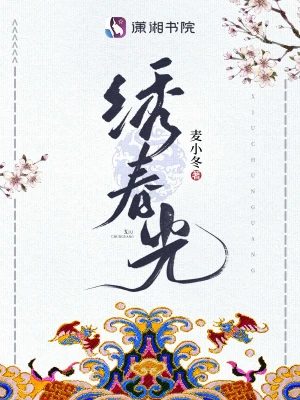 潇湘书院
绣春光
麦小冬 著
XIU
CHUNGUANG
XIUCHUNGUANG